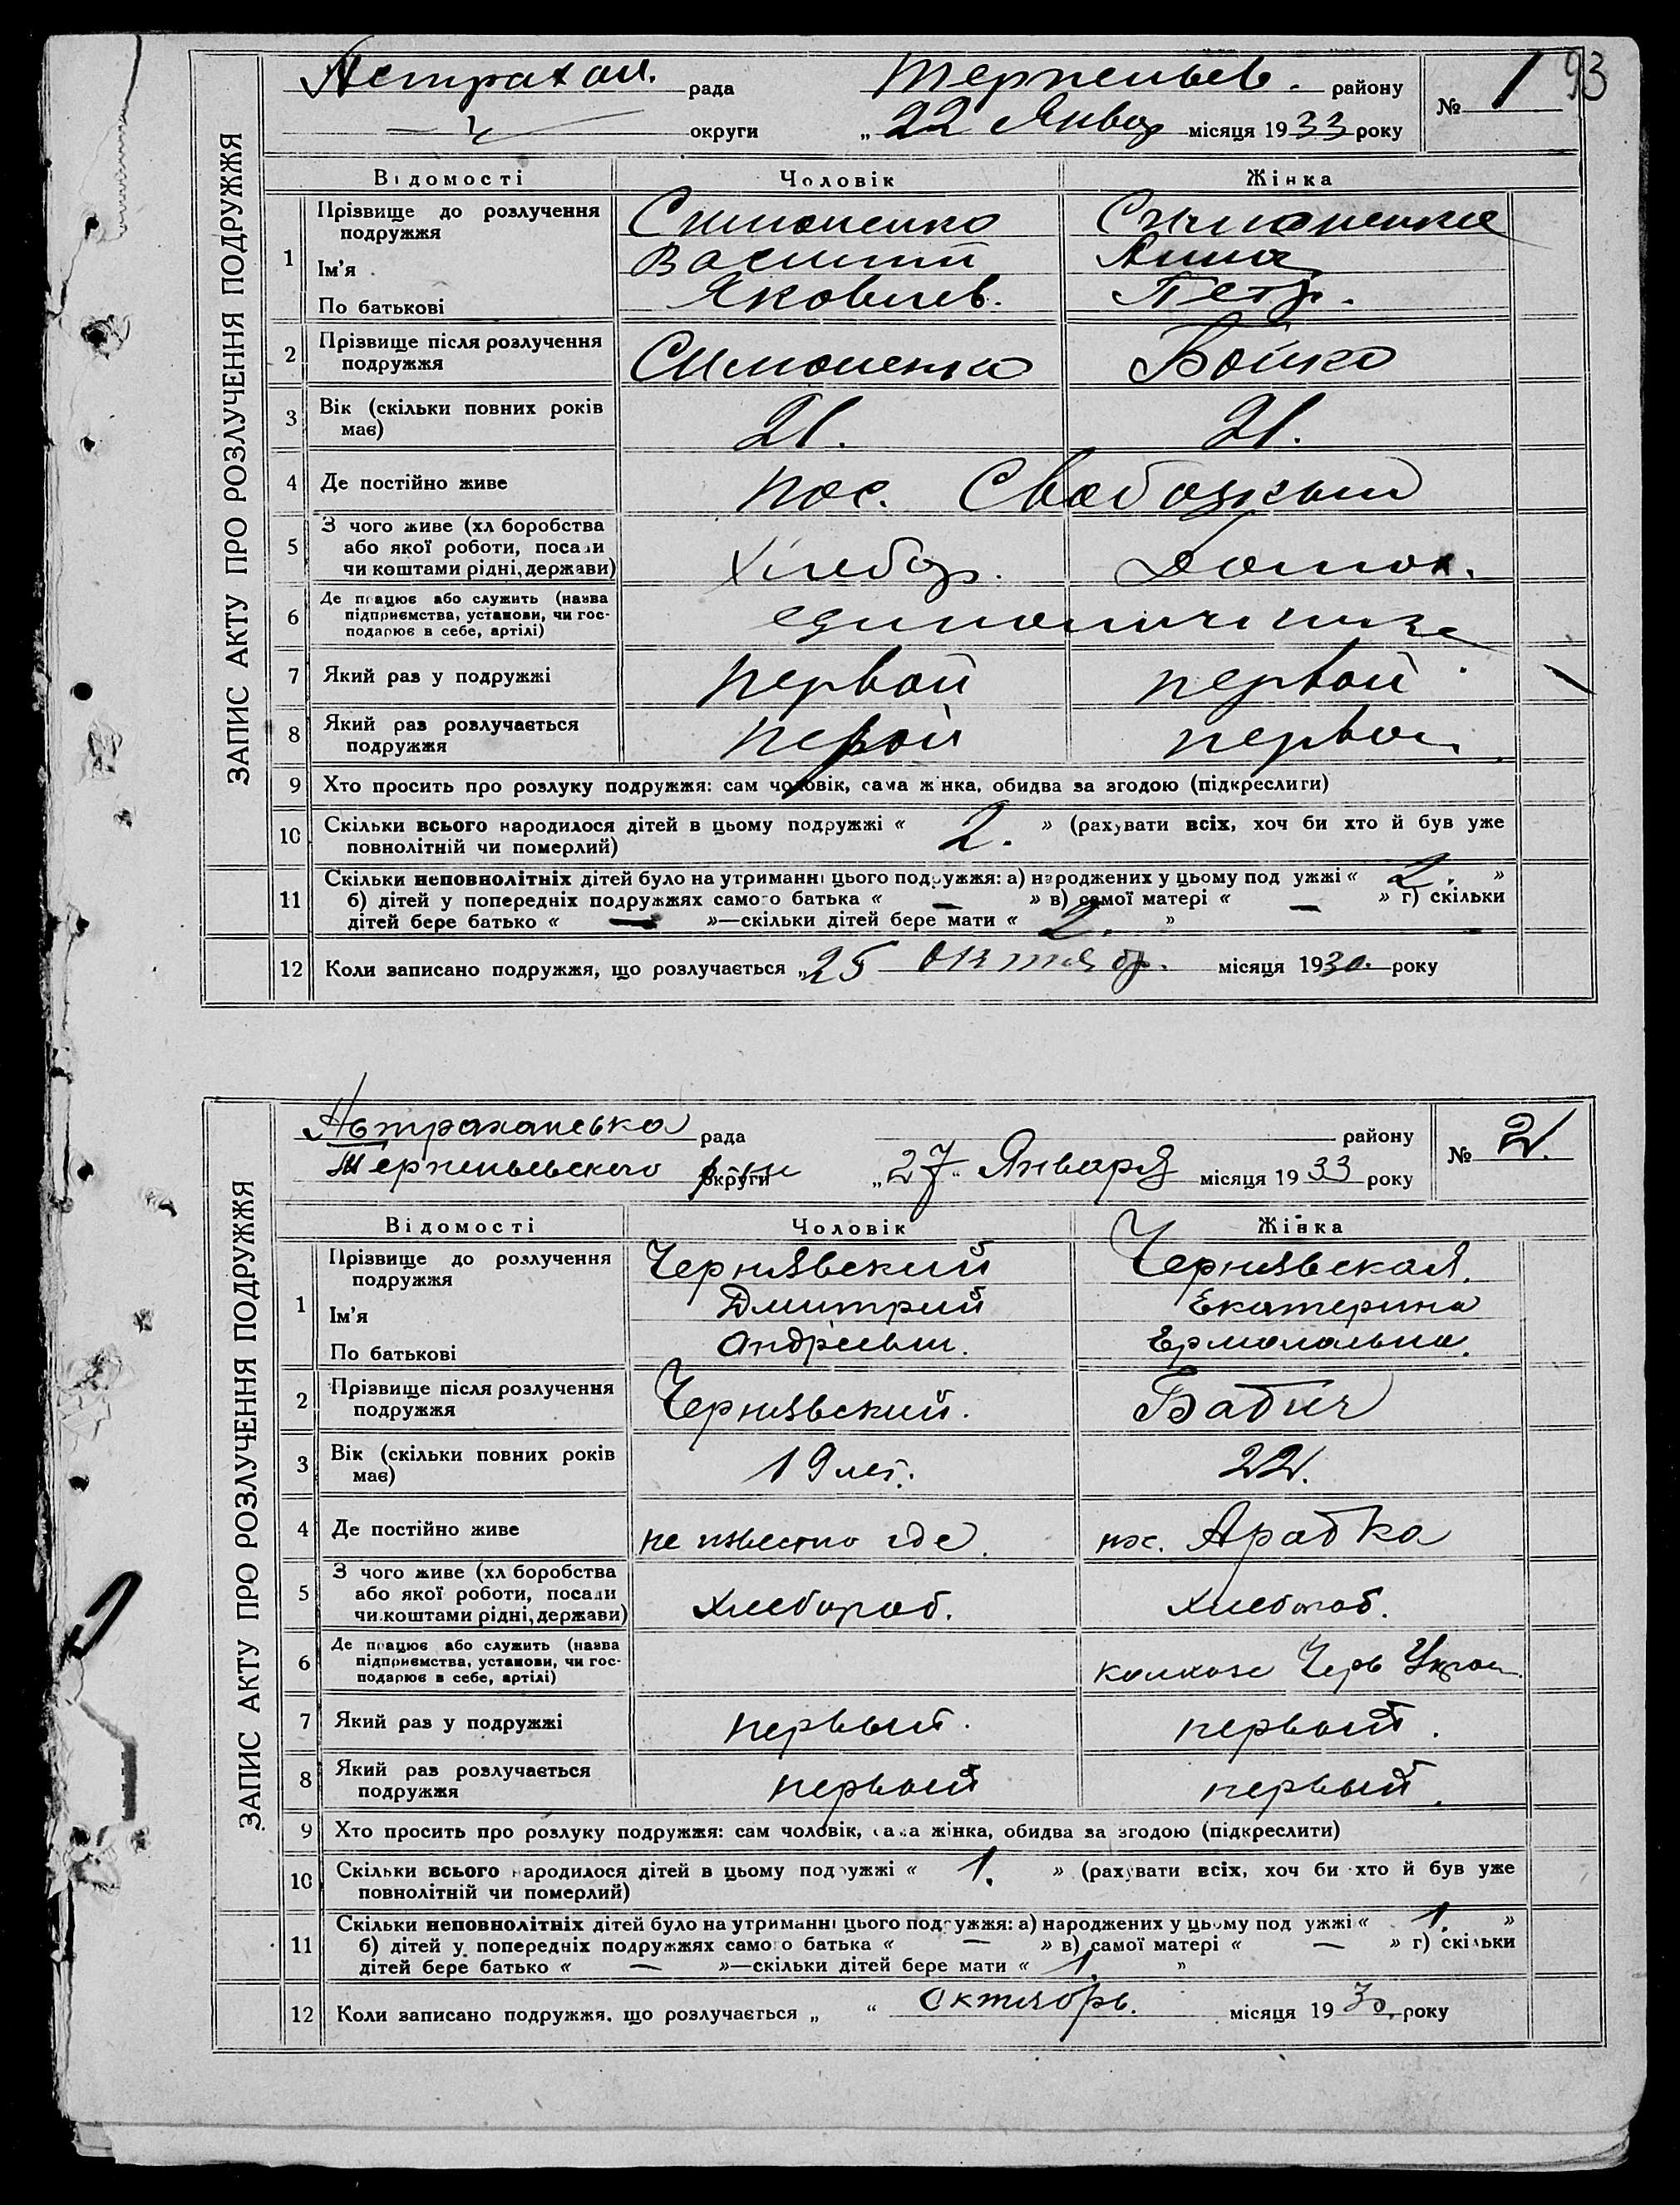 93
Астрахан. рада Терпеньев. району № 1
округи „22 Январ місяця 1933 року
ЗАПИС АКТУ ПРО РОЗЛУЧЕННЯ ПОДРУЖЖЯ
Відомості Чоловік Жінка
1 Прізвище до розлучення подружжя Симоненко Симоненко
Ім'я Василий Анна
По батькові Яковлев. Петр.
2 Прізвище після розлучення подружжя Симоненко Бойко
3 Вік (скільки повних років має) 21. 21.
4 Де постійно живе пос. Свободный
5 З чого живе (хліборобства або якої роботи, посади чи коштами рідні, держави) Хлебор. Домох.
6 Де працює або служить (назва підприємства, установи, чи господарює в себе, артілі) единоличники
7 Який раз у подружжі первой первой
8 Який раз розлучається подружжя первой первой
9 Хто просить про розлуку подружжя: сам чоловік, сама жінка, обидва за згодою (підкреслити)
10 Скільки всього народилося дітей в цьому подружжі « 2. » (рахувати всіх, хоч би хто й був уже
повнолітній чи померлий)
11 Скільки неповнолітніх дітей було на утриманні цього подружжя: а) народжених у цьому подружжі « 2. »
б) дітей у попередніх подружжях самого батька « — » в) самої матері « — » г) скільки
дітей бере батько « — »—скільки дітей бере мати « 2. »
12 Коли записано подружжя, що розлучається „25 октябр. місяця 1930. року
Астраханська рада району № 2.
Терпеньевского округи „27„ Января місяця 1933 року
ЗАПИС АКТУ ПРО РОЗЛУЧЕННЯ ПОДРУЖЖЯ
Відомості Чоловік Жінка
1 Прізвище до розлучення подружжя Чернявский Чернявская.
Ім'я Дмитрий Екатерина
По батькові Андреевич. Ермолаевна.
2 Прізвище після розлучення подружжя Чернявский. Бабич
3 Вік (скільки повних років має) 19 лет. 22.
4 Де постійно живе не известно где. пос. Арабка
5 З чого живе (хліборобства або якої роботи, посади чи коштами рідні, держави) хлебороб. хлебороб.
6 Де працює або служить (назва підприємства, установи, чи господарює в себе, артілі) колхозе Черв Украи
7 Який раз у подружжі первый. первый.
8 Який раз розлучається подружжя первый первый.
9 Хто просить про розлуку подружжя: сам чоловік, сама жінка, обидва за згодою (підкреслити)
10 Скільки всього народилося дітей в цьому подружжі « 1. » (рахувати всіх, хоч би хто й був уже
повнолітній чи померлий)
11 Скільки неповнолітніх дітей було на утриманні цього подружжя: а) народжених у цьому подружжі « 1. »
б) дітей у попередніх подружжях самого батька « — » в) самої матері « — » г) скільки
дітей бере батько « — »—скільки дітей бере мати « 1. »
12 Коли записано подружжя, що розлучається „ “ Октябрь. місяця 1930. року